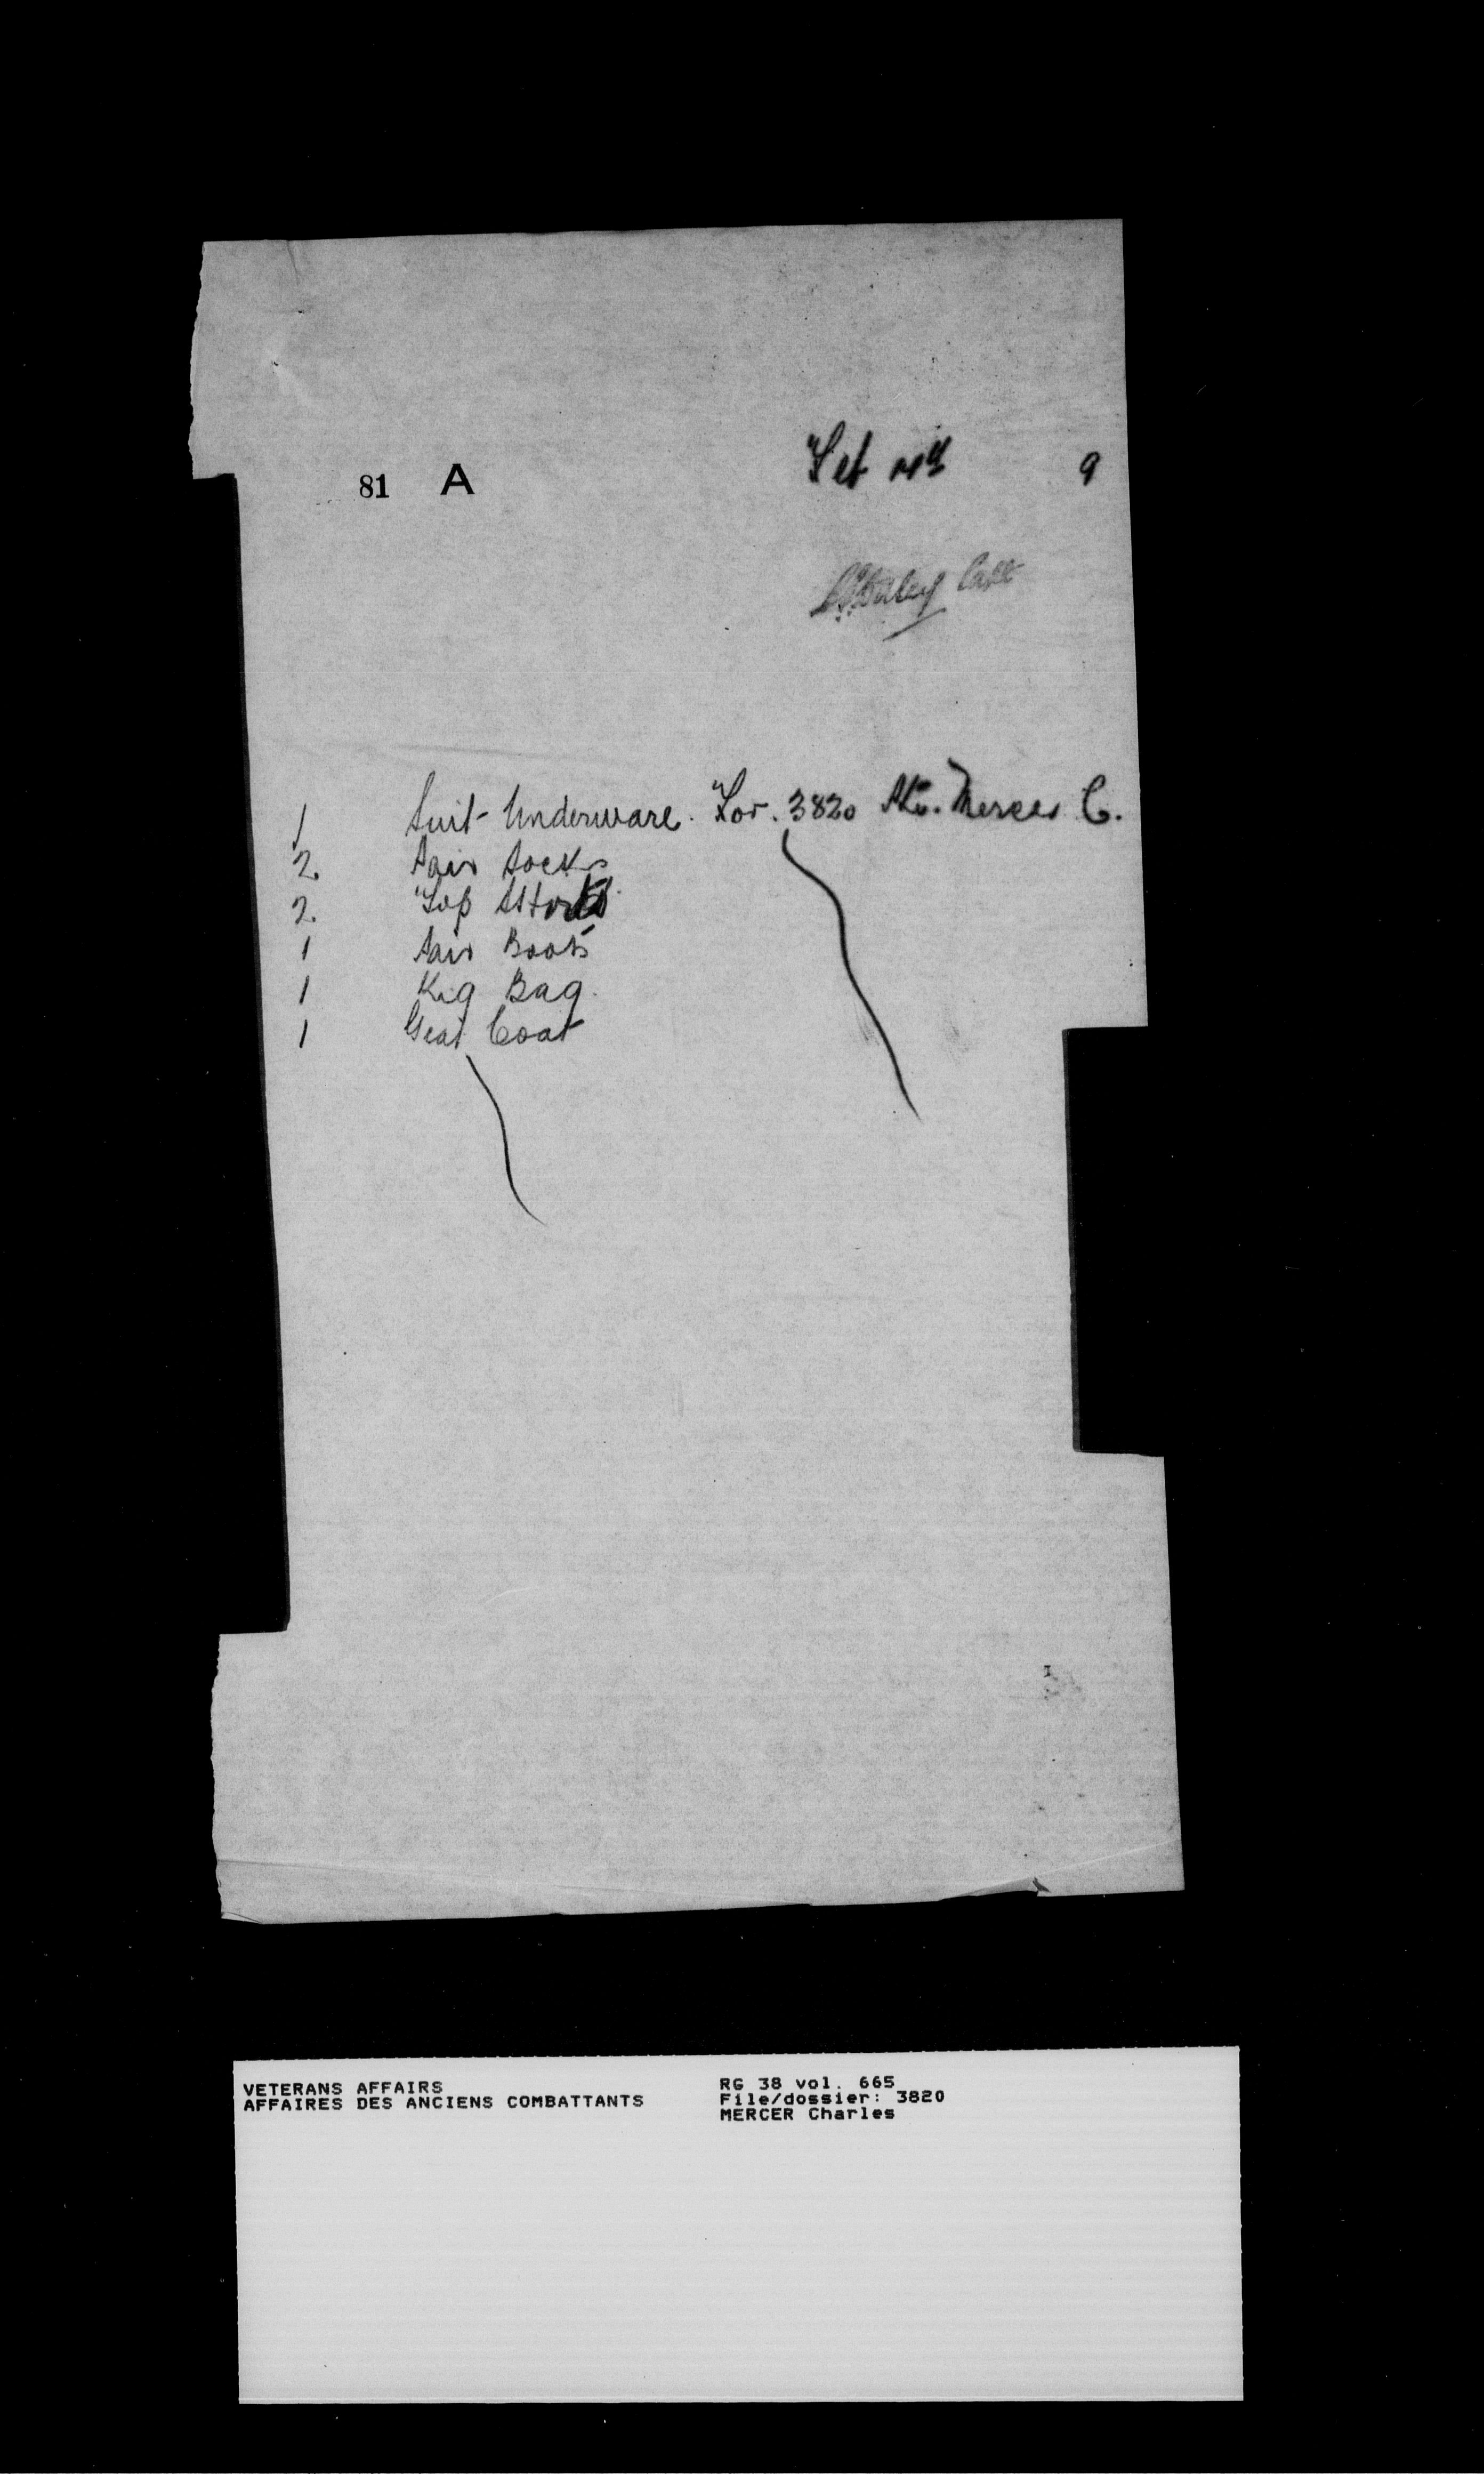 81 A Feb 9
Capt
1 Suit Underware. For. 3820 Pte. Mercer C.
2 Pair Socks
2 Top Shirts
1 Pair Boots
1 Kig Bag
1 Great Coat
VETERANS AFFAIRS
AFFAIRES DES ANCIENS COMBATTANTS
RG 38 vol. 665
File/dossier: 3820
MERCER Charles